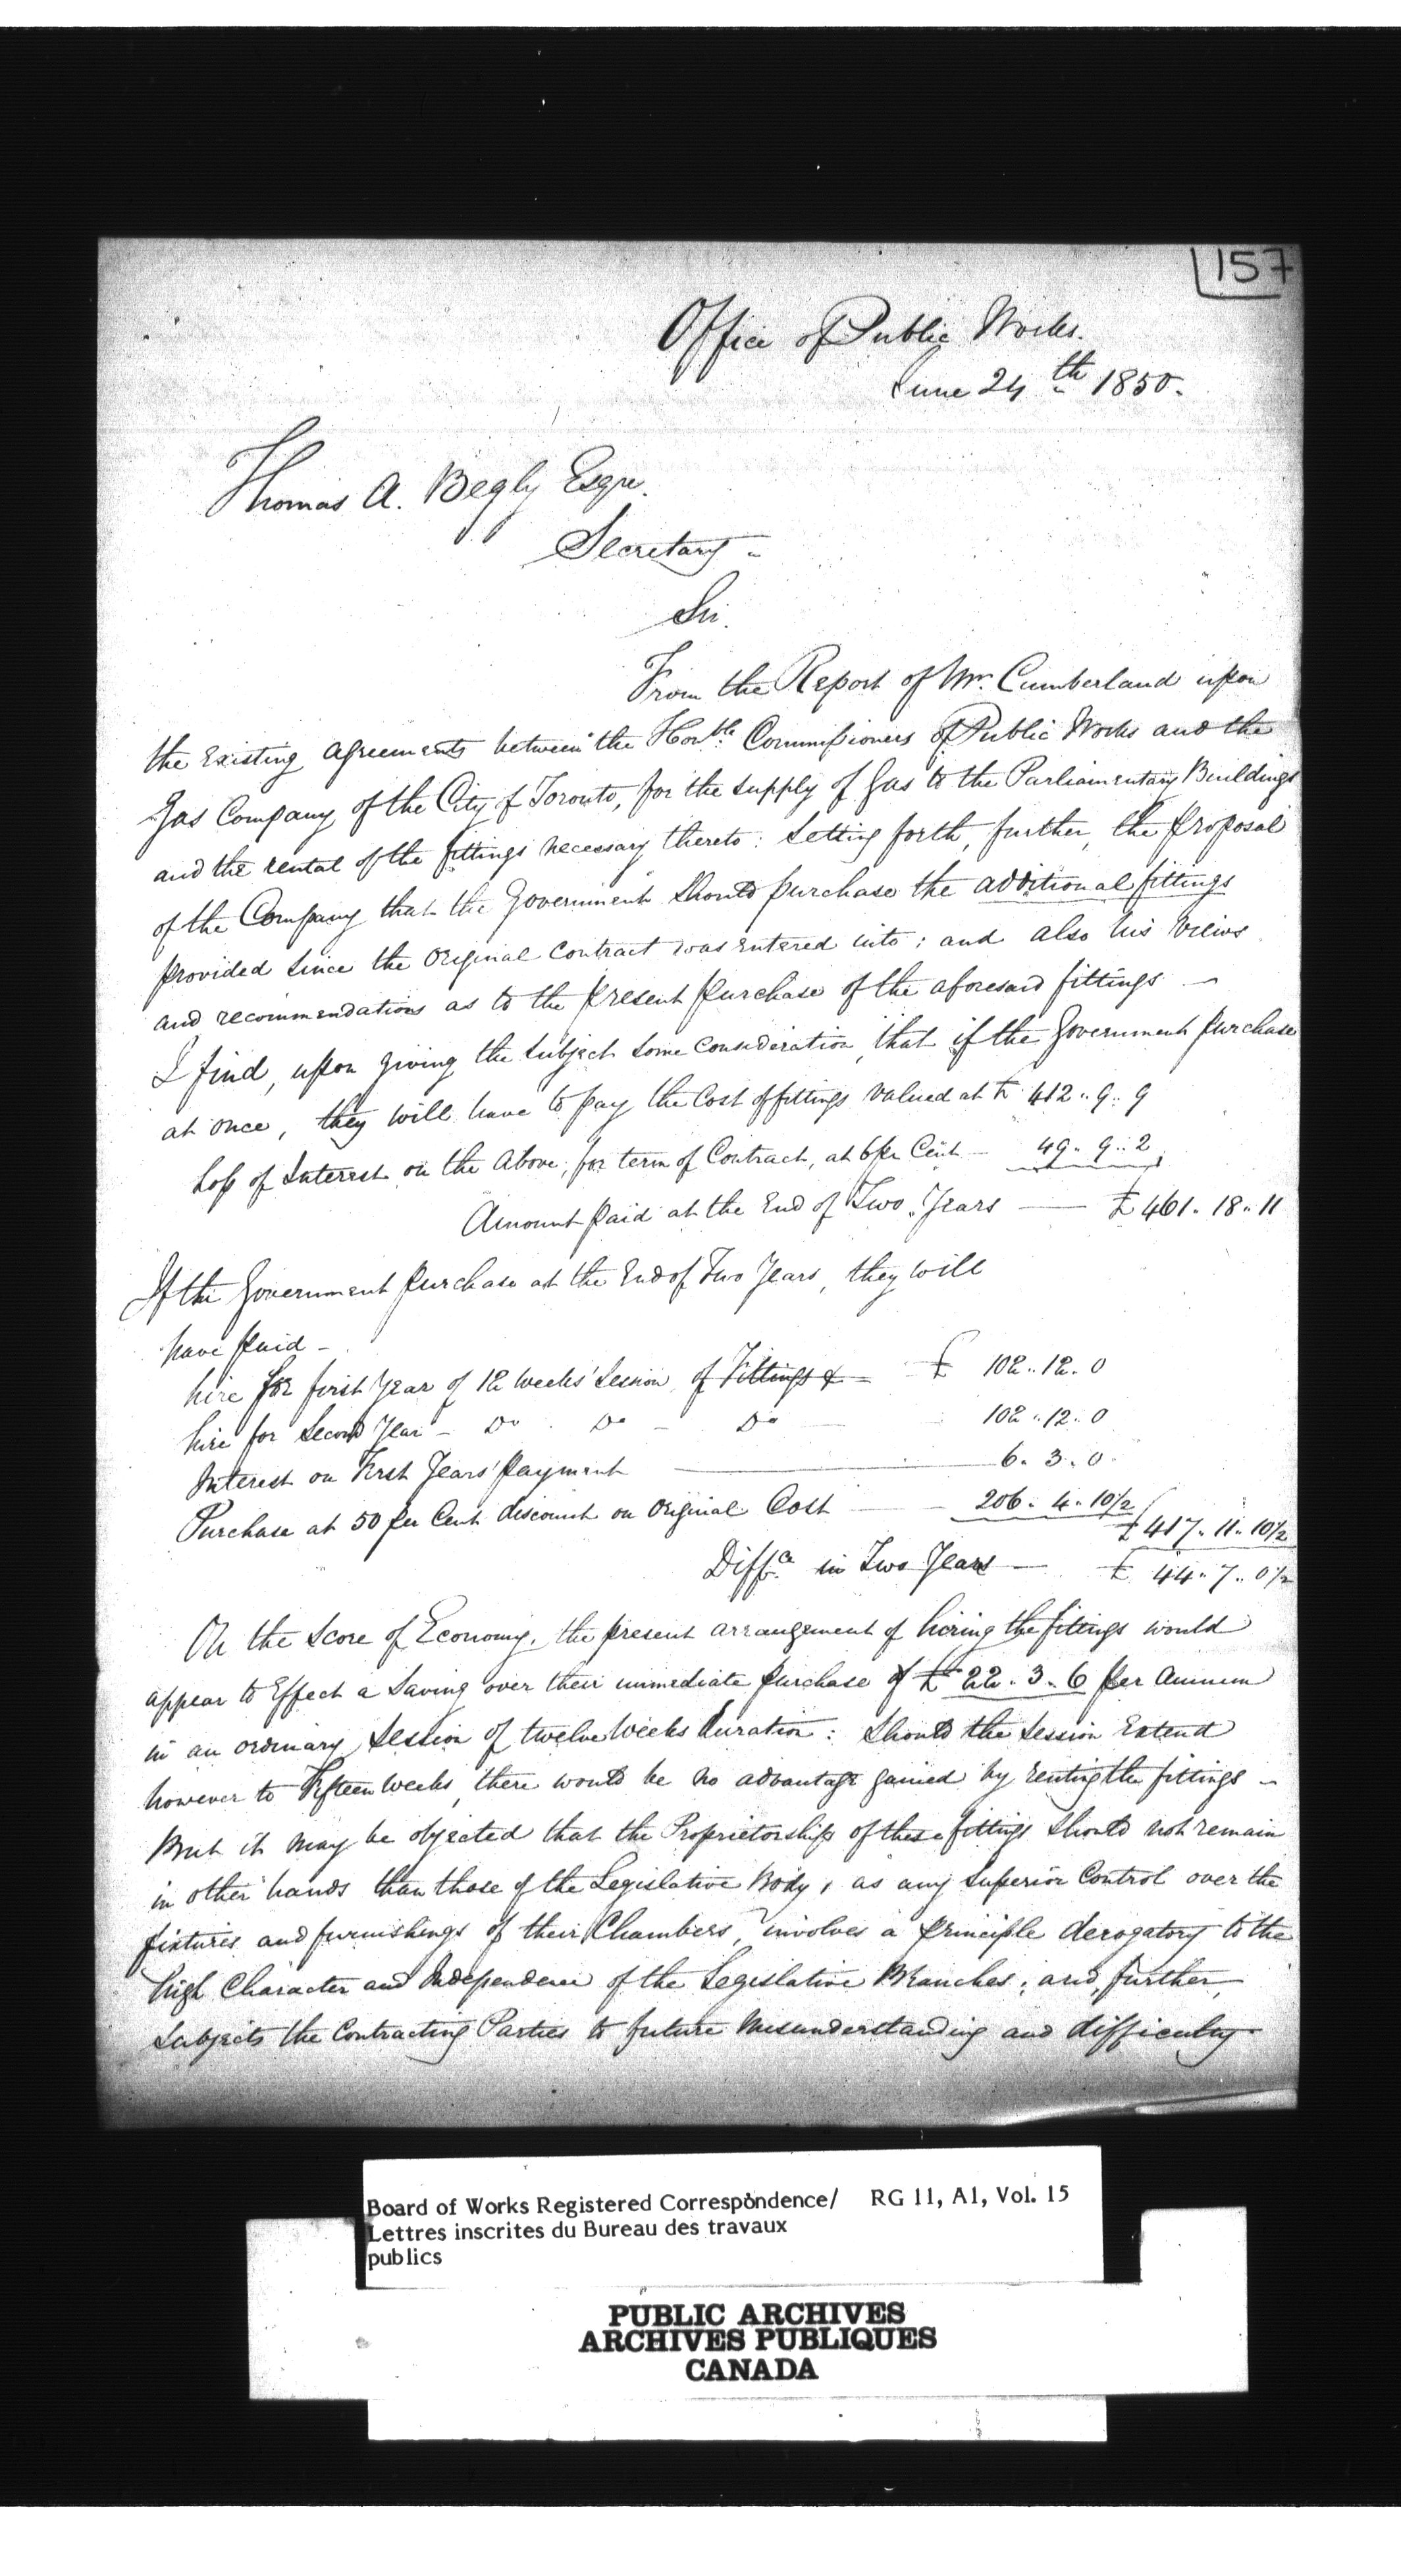 157
Office of Public Works.
June 24th 1850.
Thomas A. Begly Esqre.
Secretary -
Sir.
From the Report of Mr. Cumberland upon
the Existing agreements between the Honble. Commissioners of Public Works and the
Gas Company of the City of Toronto, for the supply of Gas to the Parliamentary Buildings
and the rental of the fittings necessary thereto: Setting forth, further, the proposal
of the Company that the Government should purchase the additional fittings
provided since the Original Contract was Entered into; and also his views
and recommendations as to the present purchase of the aforesaid fittings —
I find, upon giving the subject some consideration, that if the Government purchase
at once, they will have to pay the Cost of fittings valued at £ 412.. 9.. 9
Loss of Interest on the above, for term of Contract, at 6 per Cent — 49.. 9.. 2
Amount paid at the End of Two Years — £ 461.. 18.. 11
If the Government purchase at the End of Two Years, they will
have paid —
hire for first Year of 12 Weeks' Session, of Fittings & — £ 102.. 12.. 0
hire for Second Year — Do Do — Do 102.. 12.. 0
Interest on First Years' payment — 6.. 3.. 0
Purchase at 50 per Cent discount on Original Cost — 206.. 4.. 10½
£ 417.. 11.. 10½
Diffce. in Two Years — £ 44.. 7.. 0½
On the Score of Economy, the present arrangement of hiring the fittings would
appear to Effect a Saving over their immediate purchase of £ 22.. 3.. 6 per Annum
in an ordinary Session of twelve Weeks duration: Should the Session Extend
however to Fifteen Weeks, there would be no advantage gained by renting the fittings —
But it may be objected that the Proprietorship of these fittings should not remain
in other hands than those of the Legislative Body, as any superior Control over the
fixtures and furnishings of their Chambers, involves a principle derogatory to the
high Character and Independence of the Legislative Branches; and, further,
Subjects the Contracting Parties to future Misunderstanding and difficulty
Board of Works Registered Correspondence/ RG 11, A1, Vol. 15
Lettres inscrites du Bureau des travaux
publics
PUBLIC ARCHIVES
ARCHIVES PUBLIQUES
CANADA